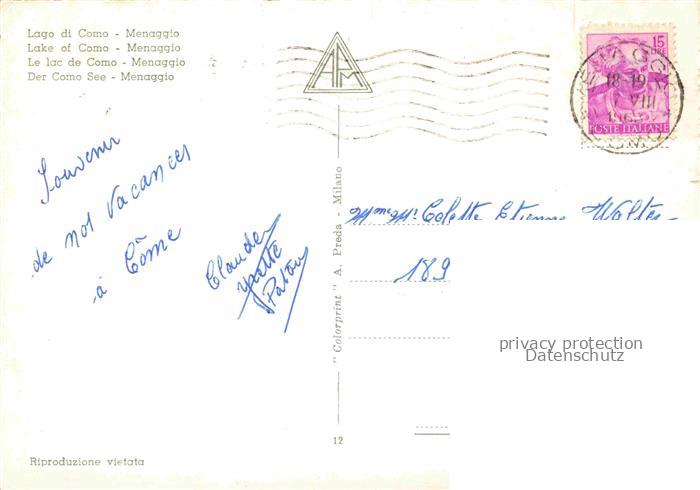 Lago di Como - Menaggio
Lake of Como - Menaggio
Le lac de Como - Menaggio
Der Como See - Menaggio
APM
15
LIRE
MENAGGIO
18-19
VIII
POSTE ITALIANE
Souvenir
de nos vacances
à Côme
Claude
Yvette
"Colorprint" A. Preda - Milano
Mme Mr. Colette Etienne Walter
189
privacy protection
Datenschutz
12
Riproduzione vietata